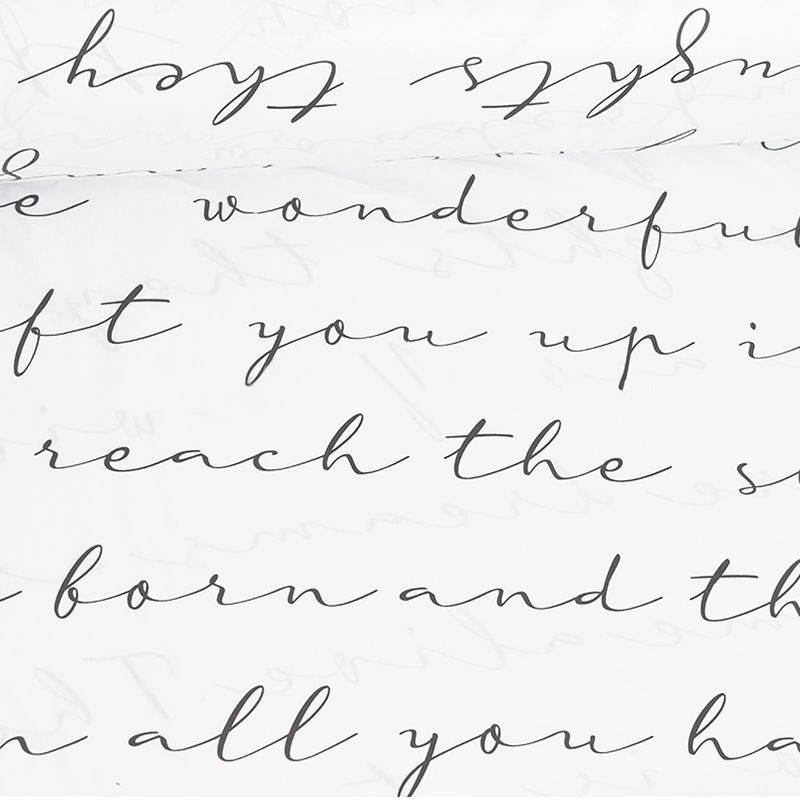 e wonderful
ft you up i
reach the s
born and th
n all you ha